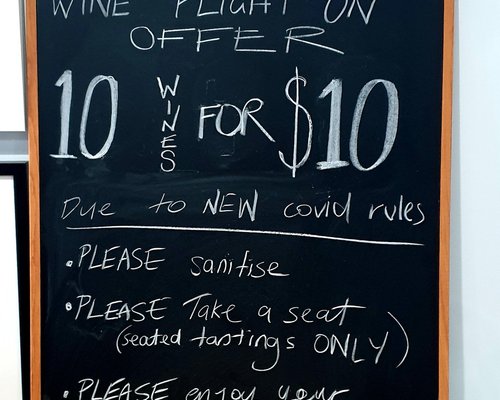 WINE FLIGHT ON
OFFER
10 WINES FOR $10
Due to NEW covid rules
• PLEASE sanitise
• PLEASE Take a seat
(seated tastings ONLY)
• PLEASE enjoy your